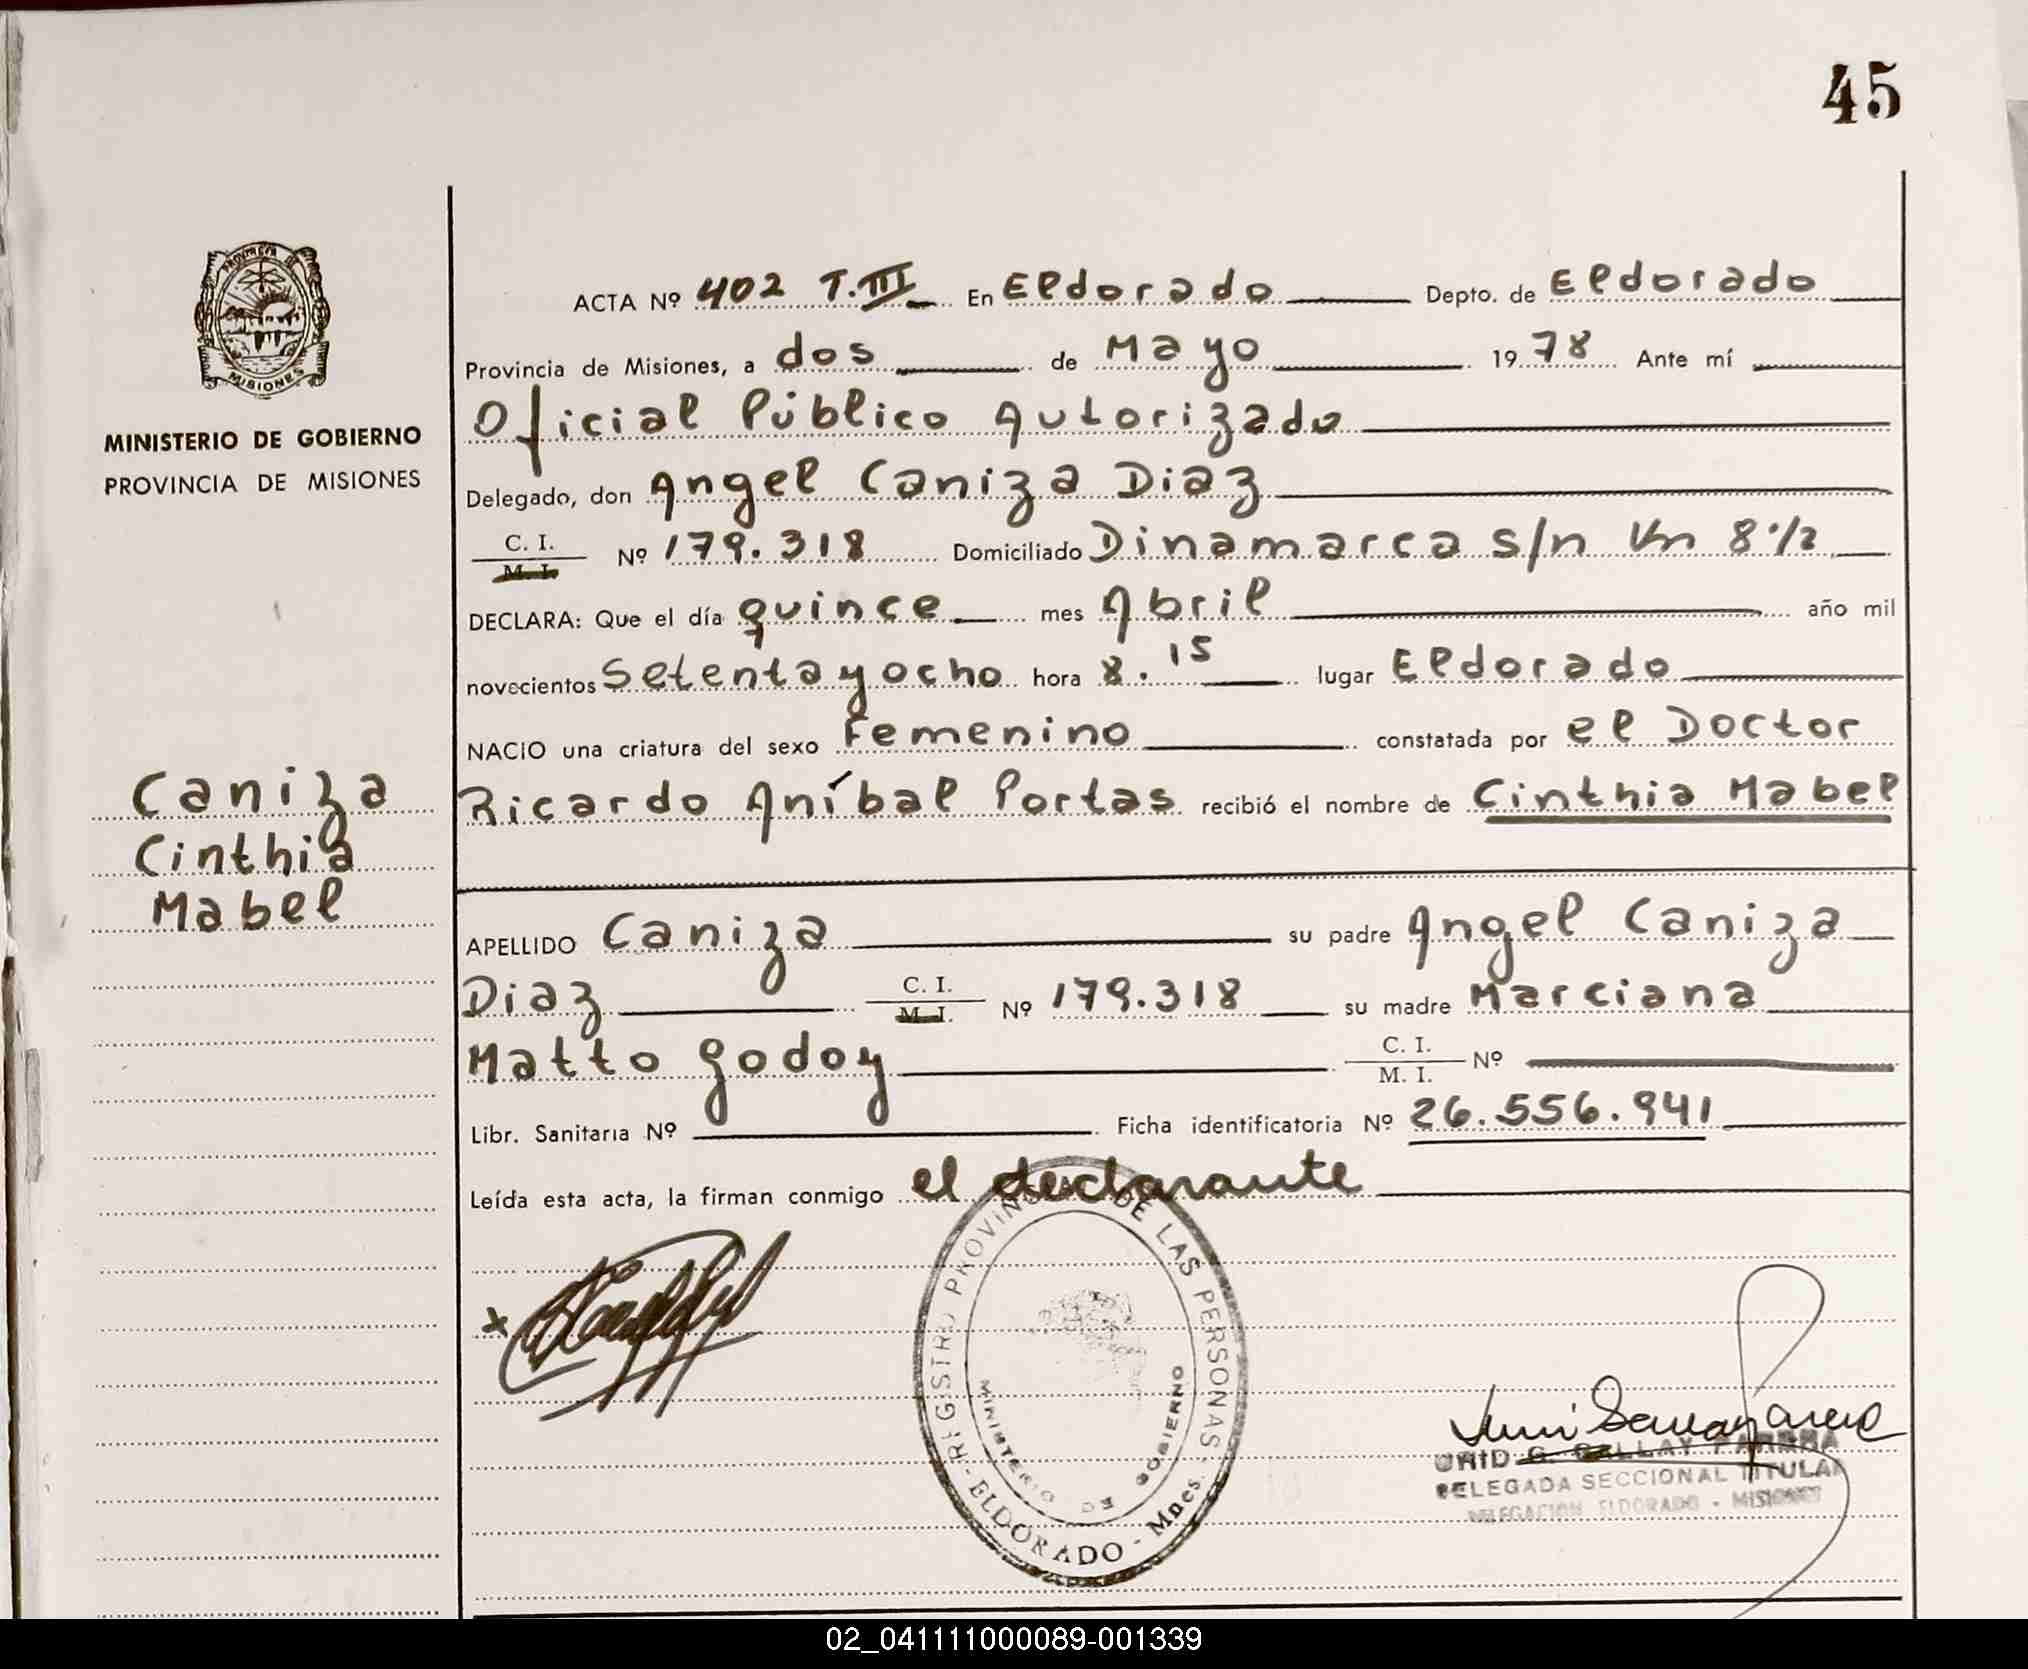 45
PROVINCIA DE
MISIONES
MINISTERIO DE GOBIERNO
PROVINCIA DE MISIONES
Caniza
Cinthia
Mabel
ACTA Nº 402 T.III En Eldorado Depto. de Eldorado
Provincia de Misiones, a dos de Mayo 1978 Ante mí
Oficial Público Autorizado
Delegado, don Angel Caniza Diaz
C. I. M. I. Nº 179.318 Domiciliado Dinamarca s/n Km 8 1/2
DECLARA: Que el día quince mes Abril año mil
novecientos Setenta y ocho hora 8.15 lugar Eldorado
NACIO una criatura del sexo Femenino constatada por el Doctor
Ricardo Aníbal Portas recibió el nombre de Cinthia Mabel
APELLIDO Caniza su padre Angel Caniza
Diaz C. I. M. I. Nº 179.318 su madre Marciana
Matto Godoy C. I. M. I. Nº
Libr. Sanitaria Nº Ficha identificatoria Nº 26.556.941
Leída esta acta, la firman conmigo el declarante
REGISTRO PROVINCIAL DE LAS PERSONAS - ELDORADO - Mnes.
MINISTERIO DE GOBIERNO
DELEGADA SECCIONAL TITULAR
DELEGACION ELDORADO - MISIONES
02_041111000089-001339